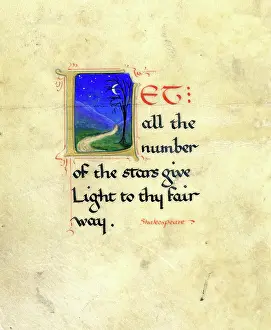 LET:
all the
number
of the stars give
Light to thy fair
way.
Shakespeare